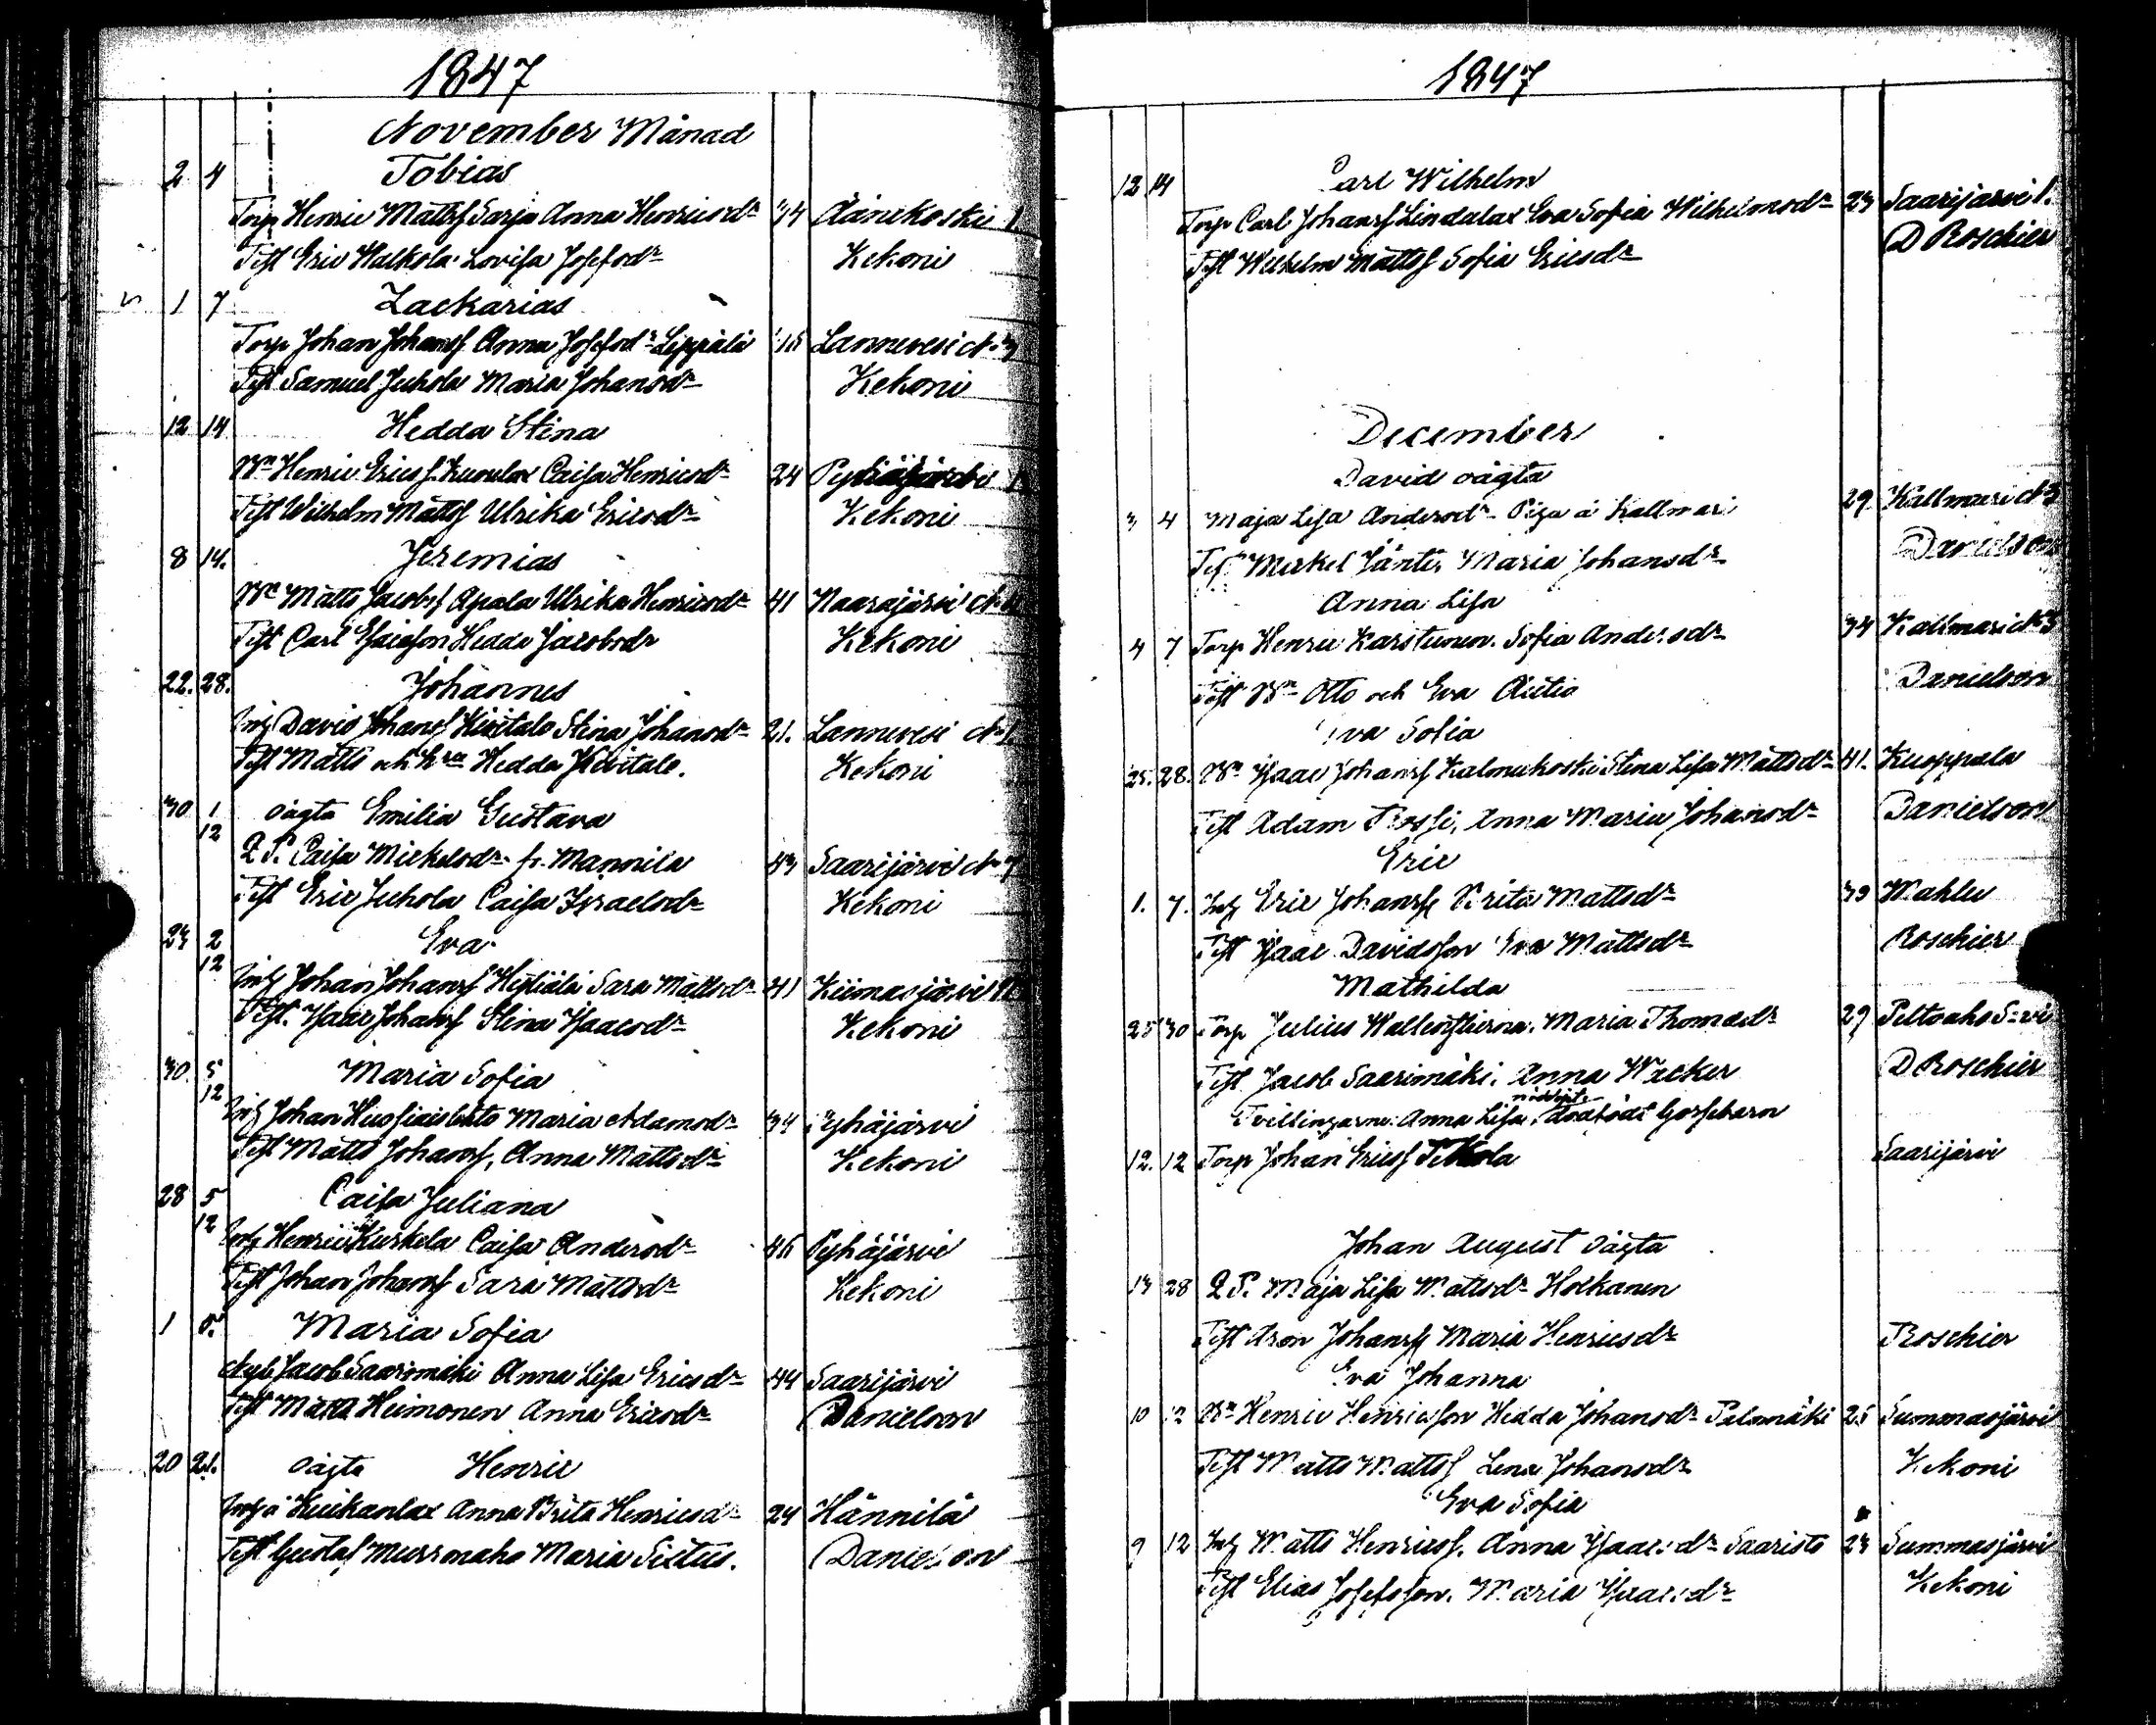 1847
November Månad
2 4 Tobias
Torp Henric Mattsf Sarja Anna Henricsdr 34 Äänekoski 1
Test Eric Walkola Lovisa Josefsdr Kekoni
1 7 Zackarias
Torp Johan Johansf Anna Josefsdr Leppälä Lannevesi N 3
Test Samuel Juhola Maria Johansdr Kekoni
12 14 Hedda Stina
Bn Henric Ericsf Caisa Henricsdr 24
Test Wilhelm Mattsf Ulrika Ericsdr Kekoni
8 14. Jeremias
Bn Matts Jacobsf Apala Ulrika Henricsdr 41 Naarajärvi N
Test Carl Hedda Jacobsdr Kekoni
22. 28. Johannes
Inh David Johansf Kivitalo Stina Johansdr 21. Lannevesi N 1
Test Matts och hru Hedda Kivitalo. Kekoni
30 1 oägta Emilia Gustava
12
Q P. Caisa Mickelsdr fr. Mannila 43 Saarijärvi N 7
Test Eric Juhola Caisa Israelsdr Kekoni
23 2 Eva
12
Inh Johan Johansf Sara Mattsdr 41 Kiimasjärvi
Test. Isaac Johansf Stina Isaacsdr Kekoni
30. 5 Maria Sofia
12
Inh Johan Maria Adamsdr 34 Pyhäjärvi
Test Matts Johansf, Anna Mattsdr Kekoni
28 5 Caisa Juliana
12
Inh Henric Kuskela Caisa Andersdr 46 Pyhäjärvi
Test Johan Johansf Sara Mattsdr Kekoni
1 5. Maria Sofia
Nyb Jacob Saarimäki Anna Lisa Ericsdr 44 Saarijärvi
Test Matts Heimonen Anna Ericsdr Danielson
20 21. oägta Henric
Inh å Kuikanlax Anna Brita Henricsdr 24 Hännilä
Test Gustaf Mursonaho Maria Sixtus. Danielson
1847
12 14 Carl Wilhelm
Torp Carl Johansf Lindalax Eva Sofia Wilhelmsdr 23 Saarijärvi 1.
Test Wilhelm Mattsf Sofia Ericsdr D Roschier
December
David oägta
3 4 Maja Lisa Andersdr Piga å Kallmari 29 Kallmari N 3
Test Mickel Jäntti, Maria Johansdr Danielson
Anna Lisa
4 7 Torp Henric Karstunen. Sofia Andersdr 34 Kallmari N 3
Test Bn Otto och Eva Autio Danielson
Eva Sofia
25. 28. Bn Isaac Johansf Kalmukoski Stina Lisa Mattsdr 41. Kuoppala
Test Adam Anna Maria Johansdr Danielson
Eric
1. 7. Inh Eric Johansf Brita Mattsdr 39 Mahlu
Test Isaac Davidsson Eva Mattsdr Roschier
Mathilda
25 30 Torp Julius Maria Thomasdr 29 Peltoaho S:vi
Test Jacob Saarimäki, Anna Wacker D Roschier
nöddöpt
Tvillingarne: Anna Lisa, dödfödt Gossebarn
12. 12 Torp Johan Ericsf Saarijärvi
Johan August oägta
13 28 Q P. Maja Lisa Mattsdr Holkanen
Test Aron Johansf Maria Henricsdr Roschier
Eva Johanna
10 12 Bn Henric Henricson Hedda Johansdr Palomäki 25 Summasjärvi
Test Matts Mattsf Lena Johansdr Kekoni
Eva Sofia
9 12 Inh Matts Henricsf. Anna Isaacsdr Saaristo 23 Summasjärvi
Test Elias Josefsson. Maria Isaacsdr Kekoni